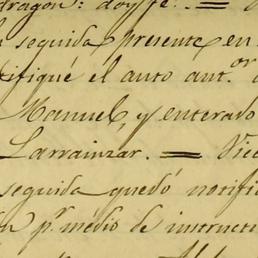 dragon: doy fe. = 
seguida presente en
tifiqué el auto ant.or
Manuel, y enterado
Larrainzar. = Vice
seguida quedó notifi
p.r medio de instructi